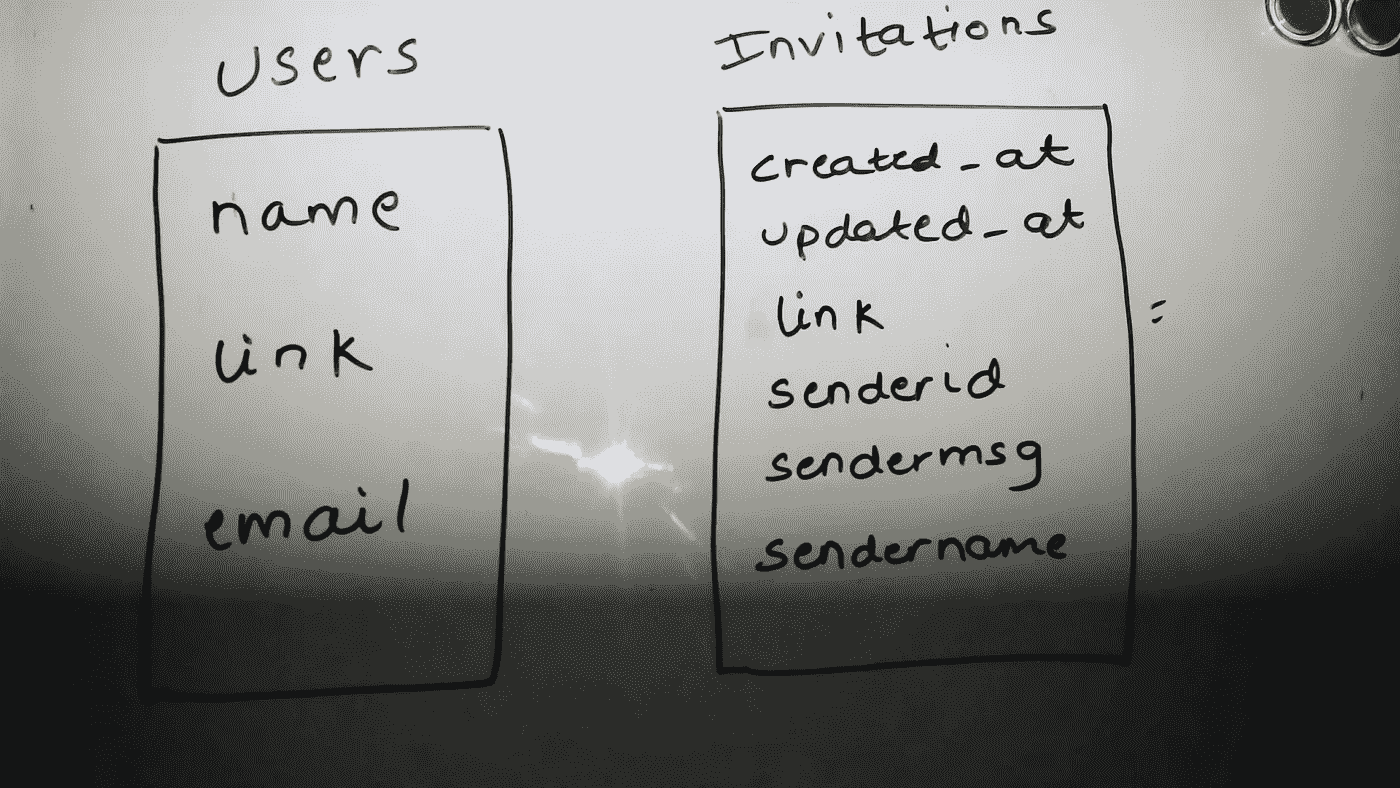 Users
name
link
email
Invitations
created_at
updated_at
link
senderid
sendermsg
sendername